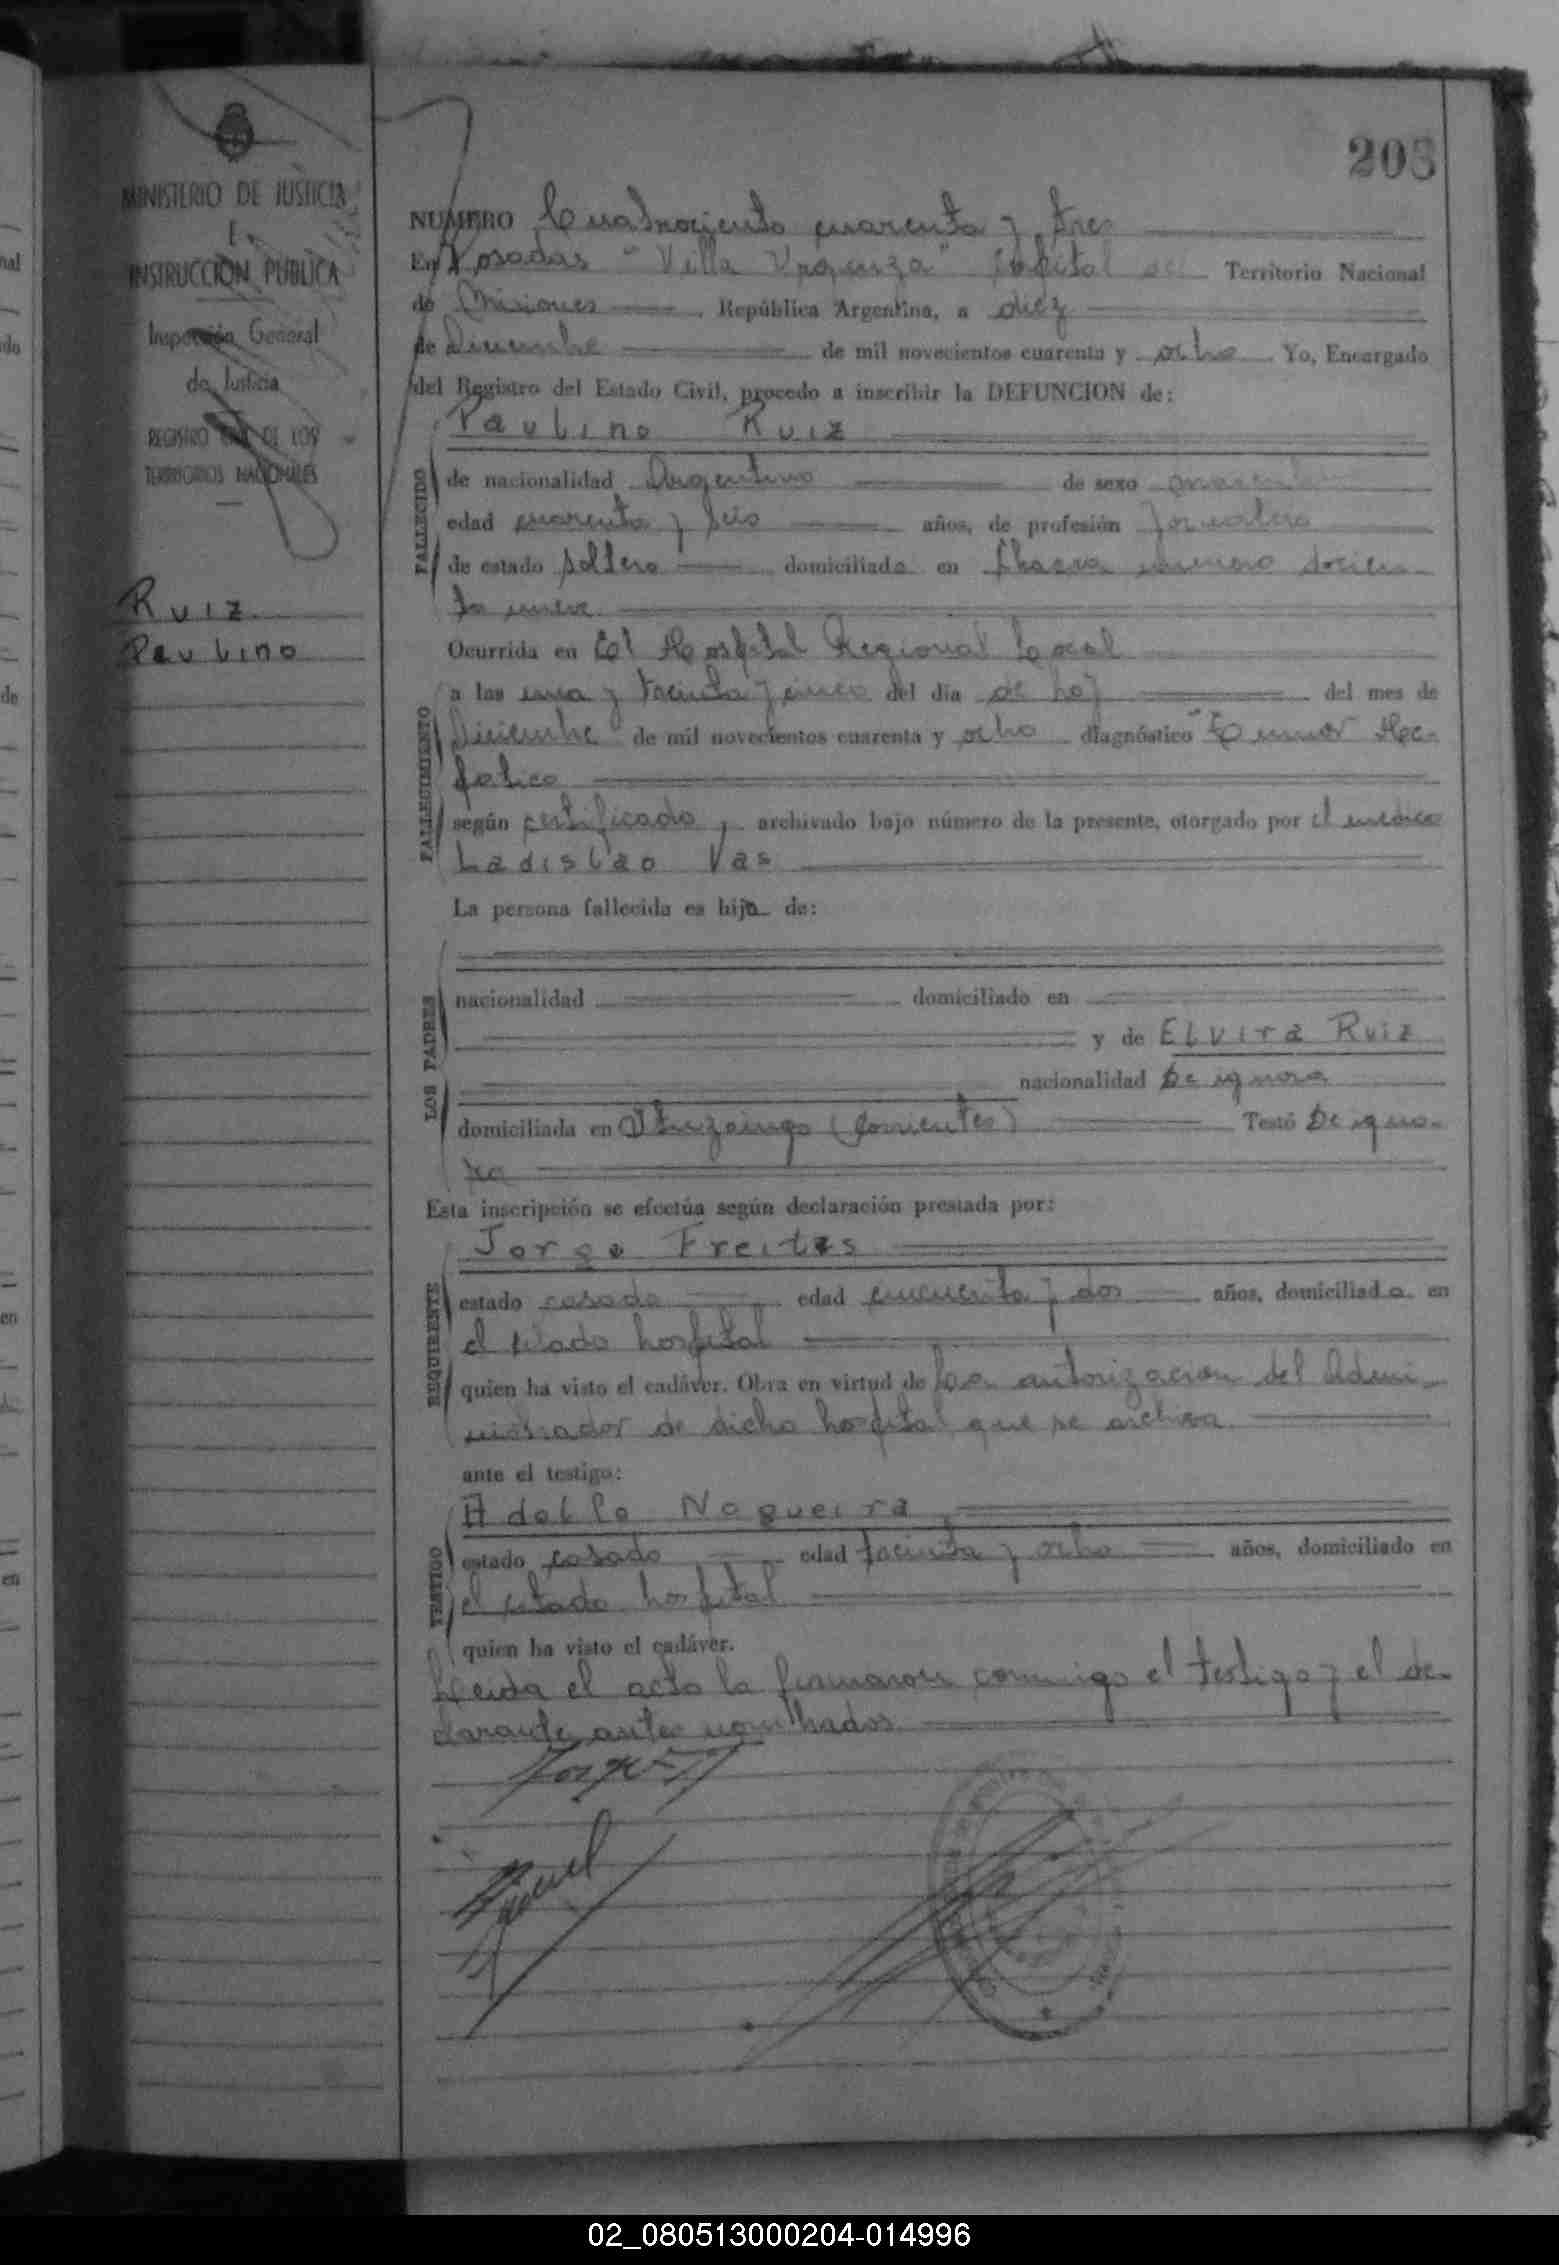 MINISTERIO DE JUSTICIA
E
INSTRUCCIÓN PÚBLICA
Inspección General
de Justicia
REGISTRO CIVIL DE LOS
TERRITORIOS NACIONALES
Ruiz
Paulino
NUMERO Cuatrociento cuarenta y tres
En Posadas "Villa Urquiza" Capital del Territorio Nacional
de Misiones, República Argentina, a diez
de Diciembre de mil novecientos cuarenta y ocho Yo, Encargado
del Registro del Estado Civil, procedo a inscribir la DEFUNCION de:
Paulino Ruiz
FALLECIDO
de nacionalidad Argentino de sexo masculino
edad cuarenta y seis años, de profesión Jornalero
de estado soltero domiciliado en Chacra numero docien
to nueve
Ocurrida en El Hospital Regional Local
FALLECIMIENTO
a las una y treinta y cinco del día de hoy del mes de
Diciembre de mil novecientos cuarenta y ocho diagnóstico "Tumor He-
patico
según certificado, archivado bajo número de la presente, otorgado por el medico
Ladislao Vas
La persona fallecida es hijo de:
LOS PADRES
nacionalidad domiciliado en
y de Elvira Ruiz
nacionalidad Se ignora
domiciliada en Ituzaingo (Corrientes) Testó Se igno-
ra
Esta inscripción se efectúa según declaración prestada por:
Jorge Freitas
REQUIRENTE
estado casado edad cincuenta y dos años, domiciliado en
el citado hospital
quien ha visto el cadáver. Obra en virtud de la autorizacion del Admi-
nistrador de dicho hospital que se archiva
ante el testigo:
Adolfo Nogueira
TESTIGO
estado casado edad treinta y ocho años, domiciliado en
el citado hospital
quien ha visto el cadáver.
Leida el acta la firmaron conmigo el testigo y el de-
clarante antes nombrados
02_080513000204-014996